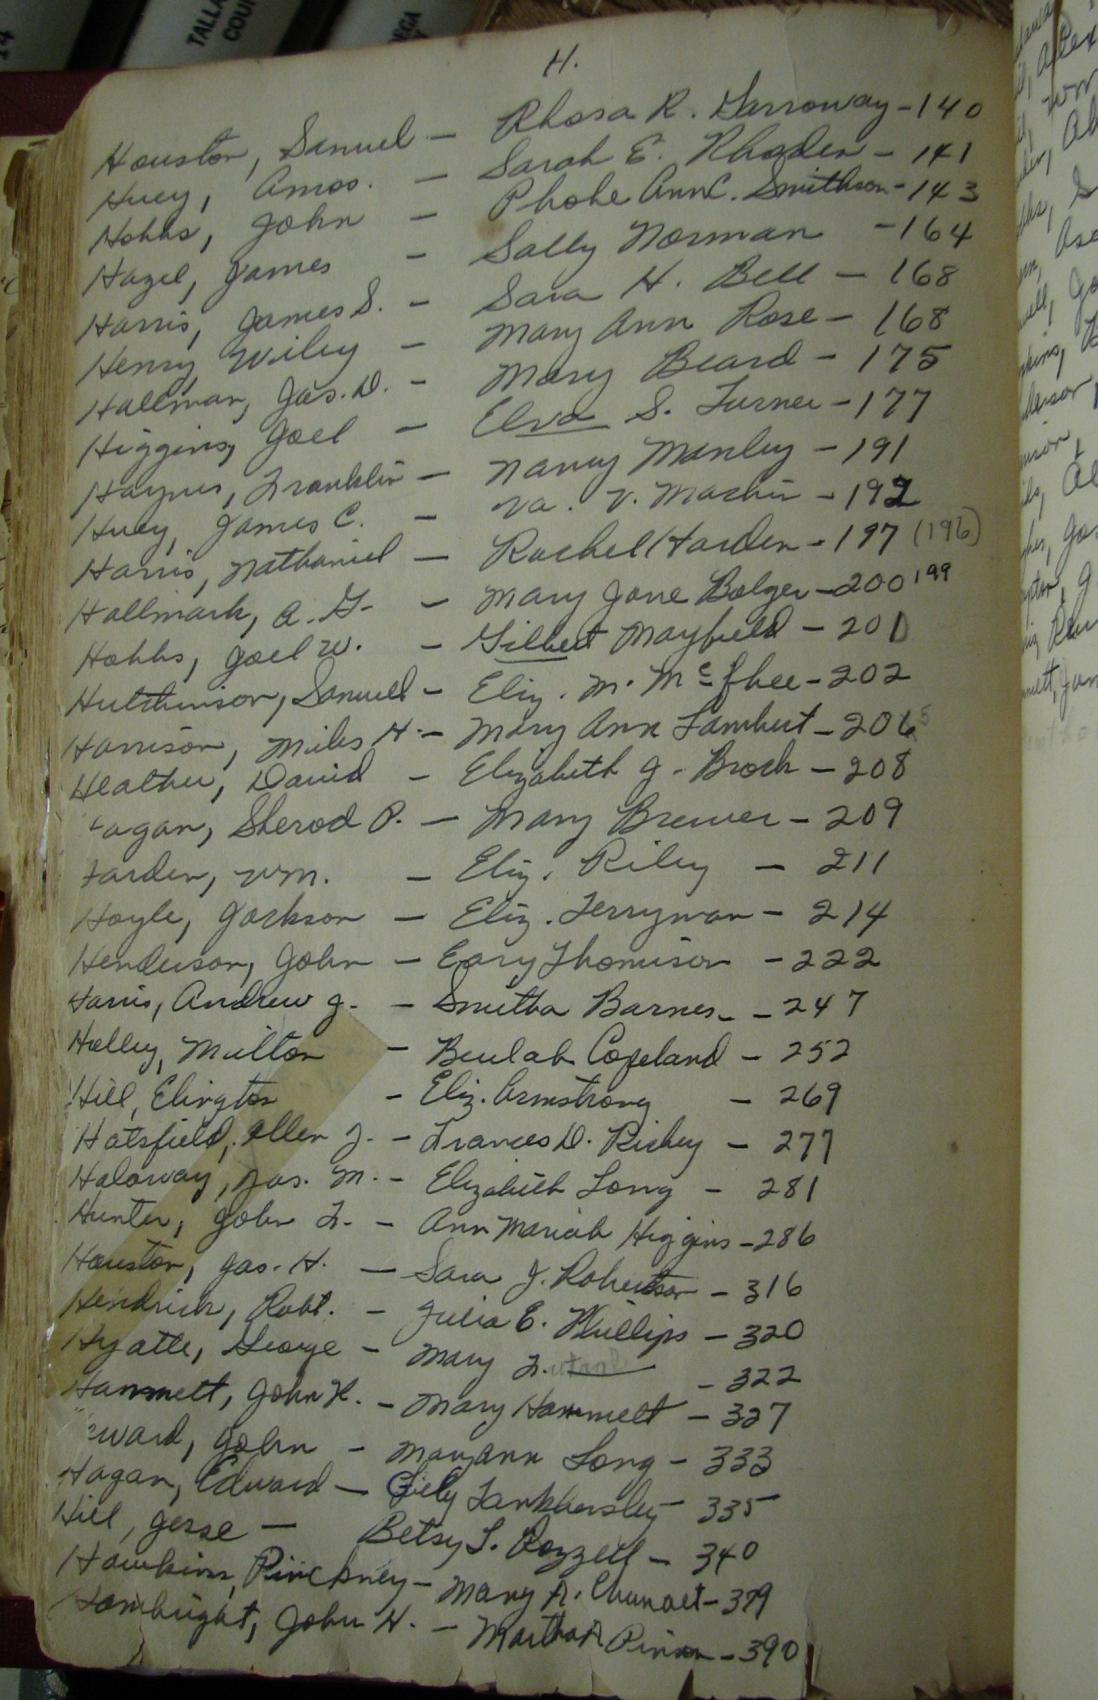 H.
Houston, Samuel - Rhosa R. Garroway - 140
Huey, Amos. - Sarah E. Rhoden - 141
Hobbs, John - Phobe Ann C. Smithson - 143
Hazel, James - Sally Norman - 164
Harris, James S. - Sara H. Bell - 168
Henry Wiley - Mary Ann Rose - 168
Hallman, Jas. D. - Mary Beard - 175
Higgins, Joel - Elva S. Turner - 177
Haynes, Franklin - Nancy Manley - 191
Huey, James C. - Va. V. Machin - 192
Harris, Nathaniel - Rachel Harden - 197 (196)
Hallmark, A. G. - Mary Jane Bolger - 200 199
Hobbs, Joel W. - Gilbert Mayfield - 201
Hutchinson, Samuel - Eliz. M. McGhee - 202
Harrison, Miles H. - Mary Ann Lambert - 206 5
Heather, David - Elizabeth J. Brock - 208
agan, Sherod P. - Mary Brewer - 209
Harden, Wm. - Eliz. Riley - 211
Hoyle, Jackson - Eliz. Terryman - 214
Henderson, John - Eary Thomison - 222
Harris, Andrew J. - Smitha Barnes - 247
Holley, Milton - Beulah Copeland - 252
Hill, Elington - Eliz. Armstrong - 269
Hatsfield, Allen J. - Frances D. Richey - 277
Haloway, Jas. M. - Elizabeth Long - 281
Hunter, John F. - Ann Mariah Higgins - 286
Houston, Jas. H. - Sara J. Robertson - 316
Hendrick, Robt. - Julia E. Phillips - 320
Hyatte, George - Mary F. - 322
Hammett, John H. - Mary Hammett - 327
ward, John - Mary Ann Long - 333
Hagan, Edward - Cily Tankhersley - 335
Hill, Jesse - Betsy L. Pozzell - 340
Hawkins, Pinckney - Mary A. - 379
Hambright, John H. - Martha A. - 390